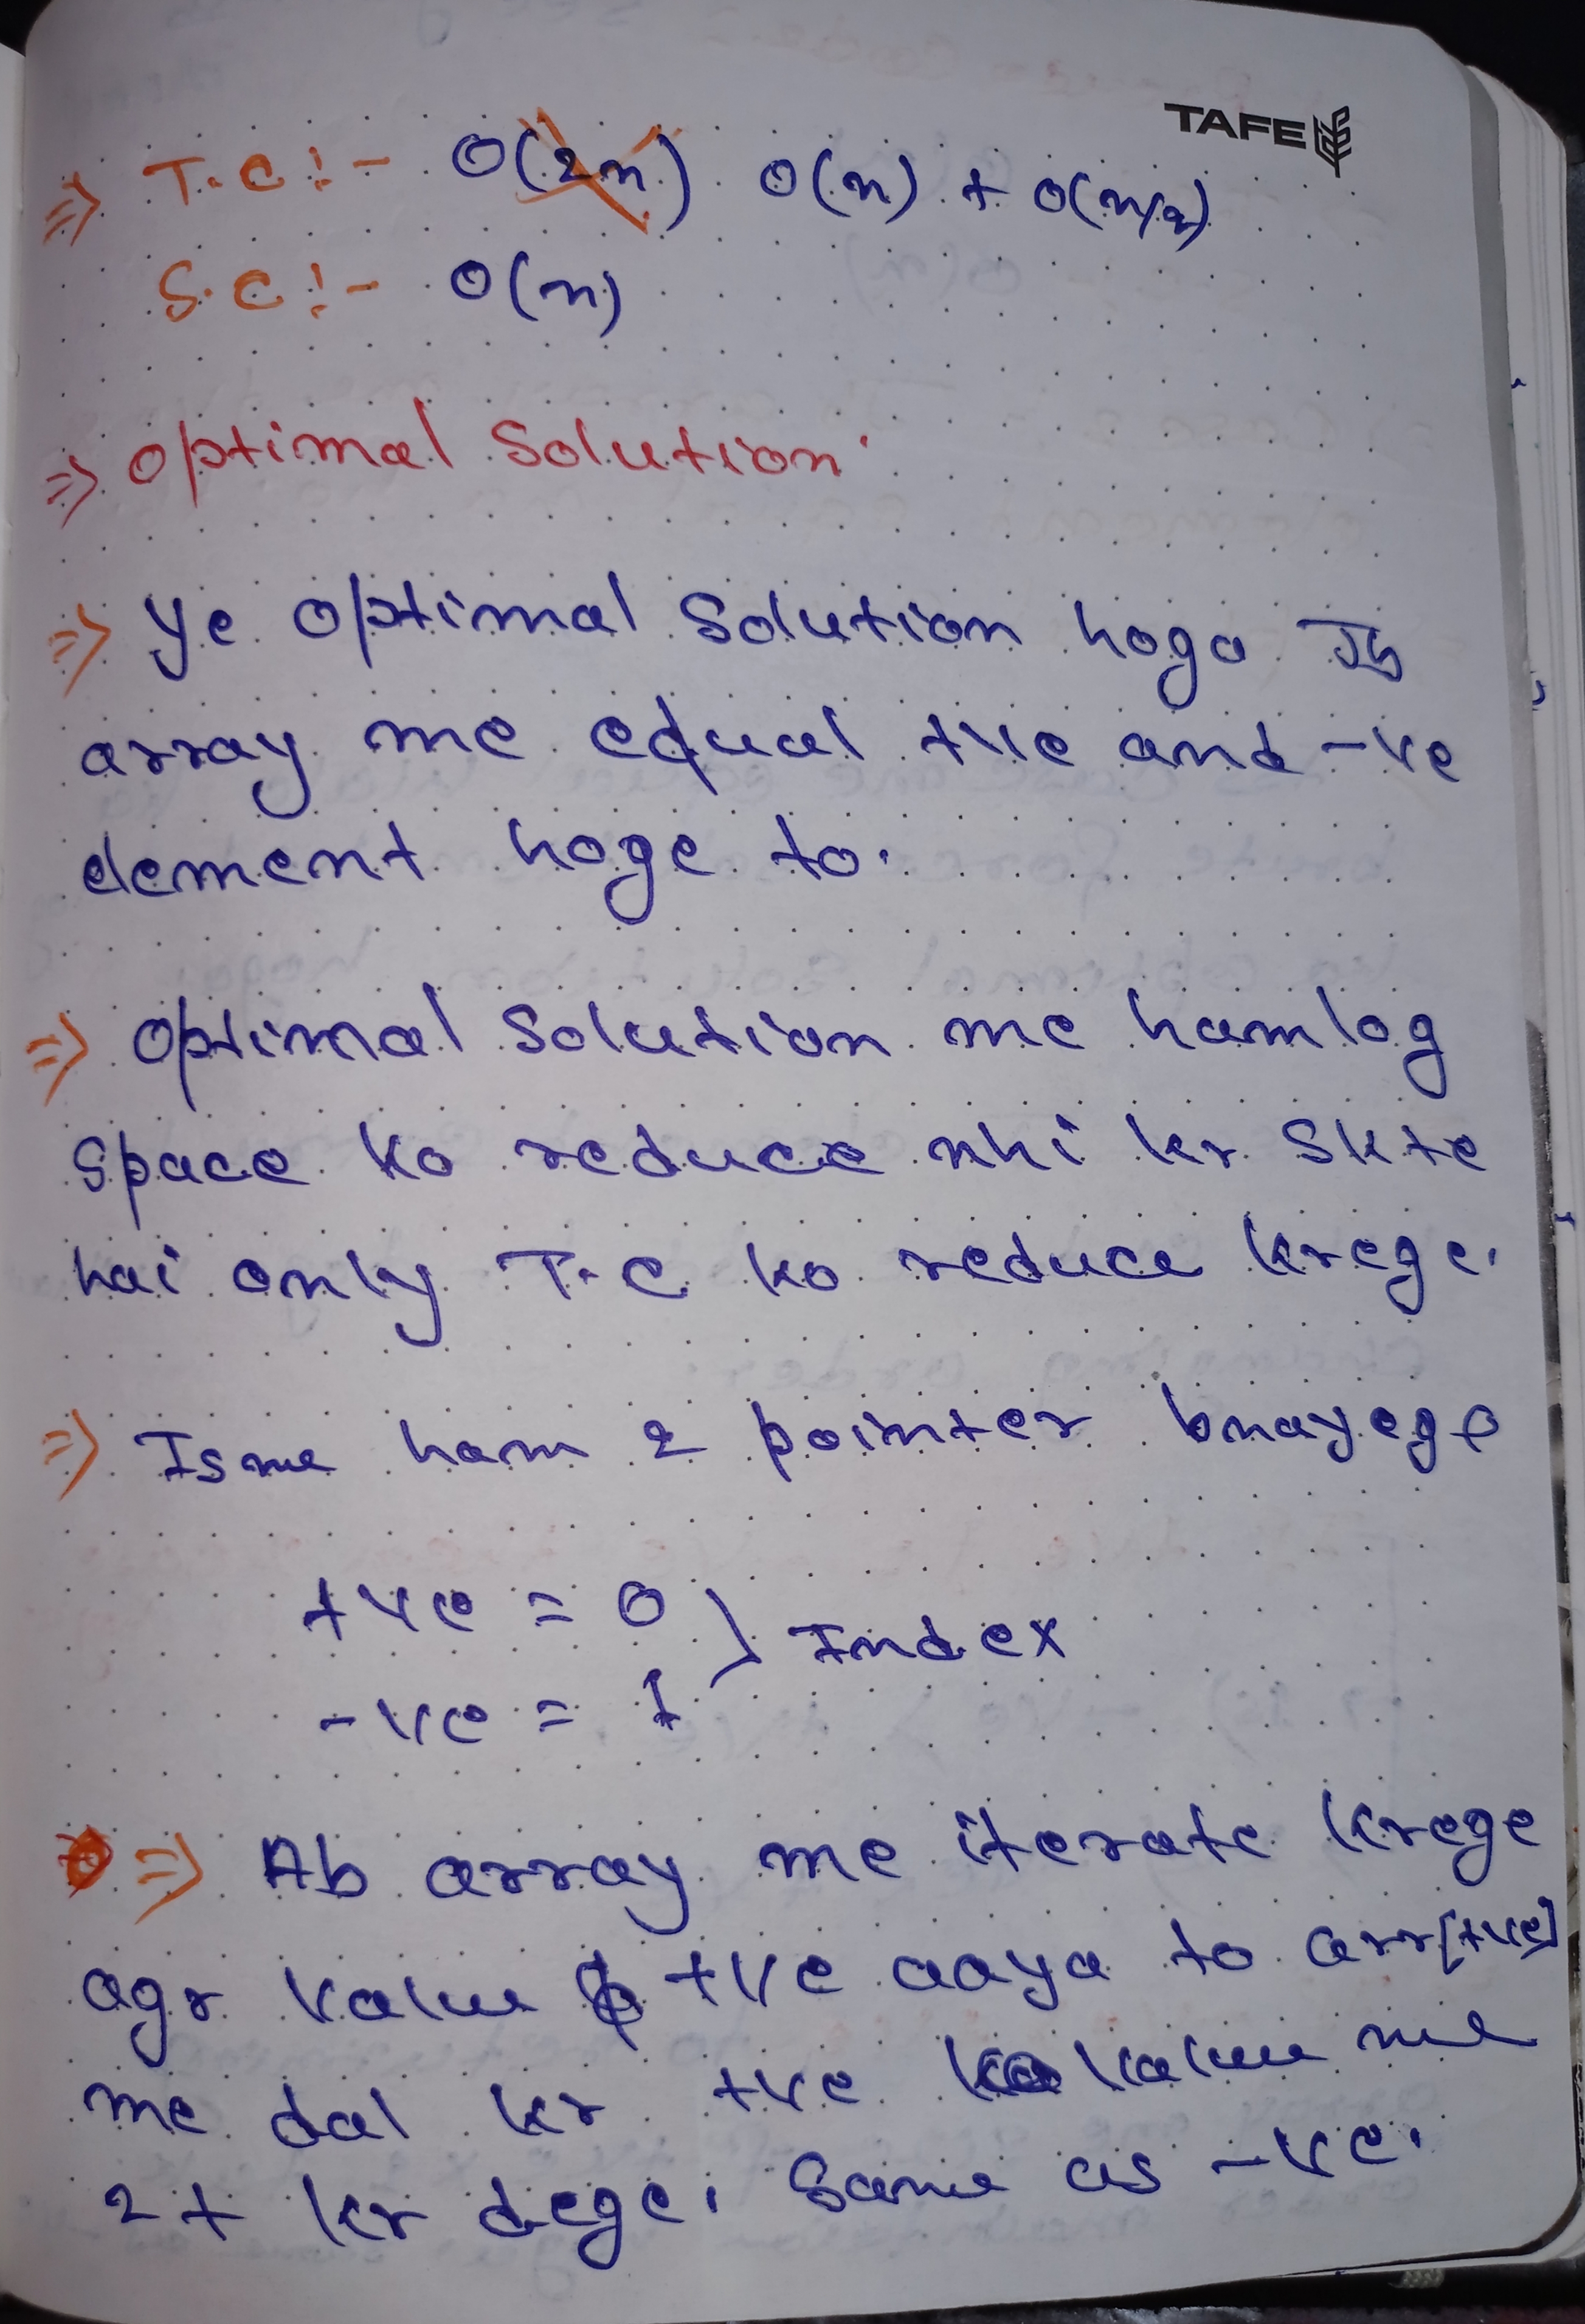 TAFE
⇒ T.C :- O(2n) O(n) + O(n/2)
S.C :- O(n)
⇒ Optimal Solution.
⇒ Ye Optimal Solution hoga Jb
array me equal +ve and -ve
element hoge to.
⇒ Optimal Solution me hamlog
Space ko reduce nhi kr Skte
hai only T.C ko reduce krege.
⇒ Isme ham 2 pointer bnayege
+ve = 0
} Index
-ve = 1
⇒ Ab array me iterate krege
agr value +ve aaya to arr[+ve]
me dal kr +ve ka value me
2+ kr dege. Same as -ve.